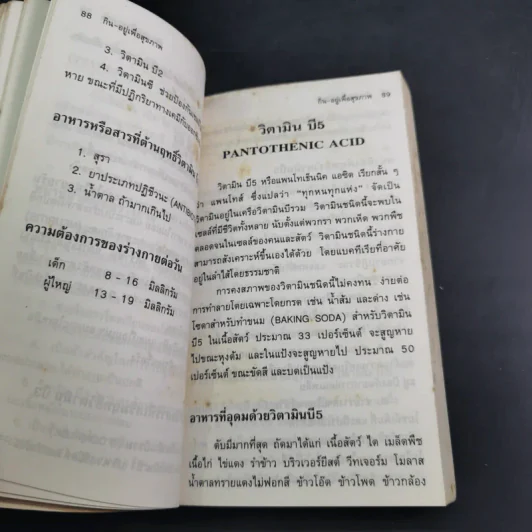 88 กิน-อยู่เพื่อสุขภาพ
3. วิตามิน บี2
4. วิตามินซี ช่วยป้องกัน
หาย ขณะที่มีปฏิกริยาทางเคมีกับ
อาหารหรือสารที่ต้านฤทธิ์วิตามิน
1. สุรา
2. ยาประเภทปฏิชีวนะ
3. น้ำตาล ถ้ามากเกินไป
ความต้องการของร่างกายต่อวัน
เด็ก 8 - 16 มิลลิกรัม
ผู้ใหญ่ 13 - 19 มิลลิกรัม
กิน-อยู่เพื่อสุขภาพ 89
วิตามิน บี5
PANTOTHENIC ACID
วิตามิน บี5 หรือแพนโทเธ็นนิค แอซิด เรียกสั้น ๆ
ว่า แพนโทส์ ซึ่งแปลว่า "ทุกหนทุกแห่ง" จัดเป็น
วิตามินอยู่ในเครือวิตามินบีรวม วิตามินชนิดนี้จะพบใน
เซลล์ที่มีชีวิตทั้งหลาย นับตั้งแต่พวกรา พวกเห็ด พวกพืช
ตลอดจนในเซลล์ของคนและสัตว์ วิตามินชนิดนี้ร่างกาย
สามารถสังเคราะห์ขึ้นเองได้ด้วย โดยแบคทีเรียที่อาศัย
อยู่ในลำไส้โดยธรรมชาติ
การคงสภาพของวิตามินชนิดนี้ไม่คงทน ง่ายต่อ
การทำลายโดยเฉพาะโดยกรด เช่น น้ำส้ม และด่าง เช่น
โซดาสำหรับทำขนม (BAKING SODA) สำหรับวิตามิน
บี5 ในเนื้อสัตว์ ประมาณ 33 เปอร์เซ็นต์ จะสูญหาย
ไปขณะหุงต้ม และในแป้งจะสูญหายไป ประมาณ 50
เปอร์เซ็นต์ ขณะขัดสี และบดเป็นแป้ง
อาหารที่อุดมด้วยวิตามินบี5
ตับมีมากที่สุด ถัดมาได้แก่ เนื้อสัตว์ ไต เมล็ดพืช
เนื้อไก่ ไข่แดง รำข้าว บริวเวอร์ยีสต์ วีทเจอร์ม โมลาส
น้ำตาลทรายแดงไม่ฟอกสี ข้าวโอ๊ต ข้าวโพด ข้าวกล้อง